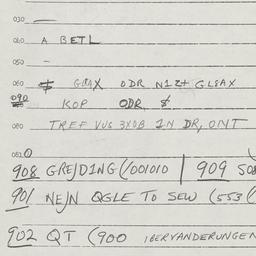 030 —
040 A BETL
050 –
060 $ GLAX ODR N1Z+ GLSAX
090 KOP ODR $
080 TREF VUS 3XOB IN DR, ONT
081
908 GREJDING (/001010 | 909 508
901 NEJN QGLE TO SEW (553 (
902 QT (900 IBERYANDERUNGEN